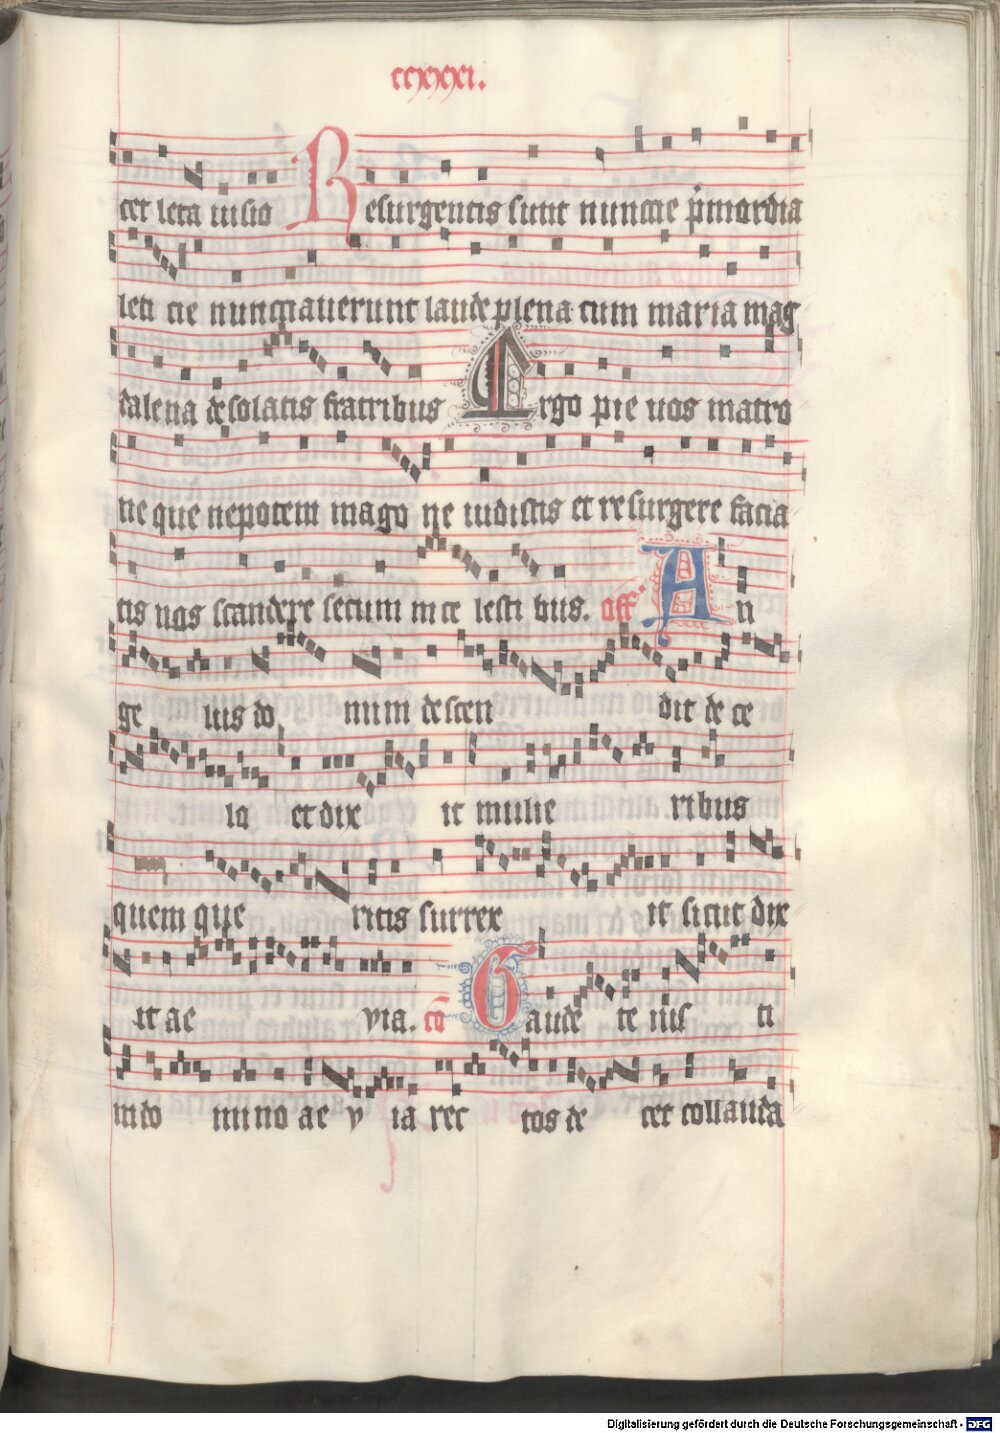 ccxxxi.
cet leta uisio Resurgentis sunt nuncie p̄mordia
leti cie nunciauerunt laude plena cum maria mag
dalena desolatis fratribus Ergo pie uos matro
ne que nepotem mago ne uidistis et resurgere facia
tis nos scandere secum in ce lesti bus. off An
ge lus do num descen dit de ce
lo et dix it mulie ribus
quem que ritis surrex it sicut dix
it ae via. cō Gaude te iusti
in do mino ae v ia rec tos de cet collauda
Digitalisierung gefördert durch die Deutsche Forschungsgemeinschaft - DFG